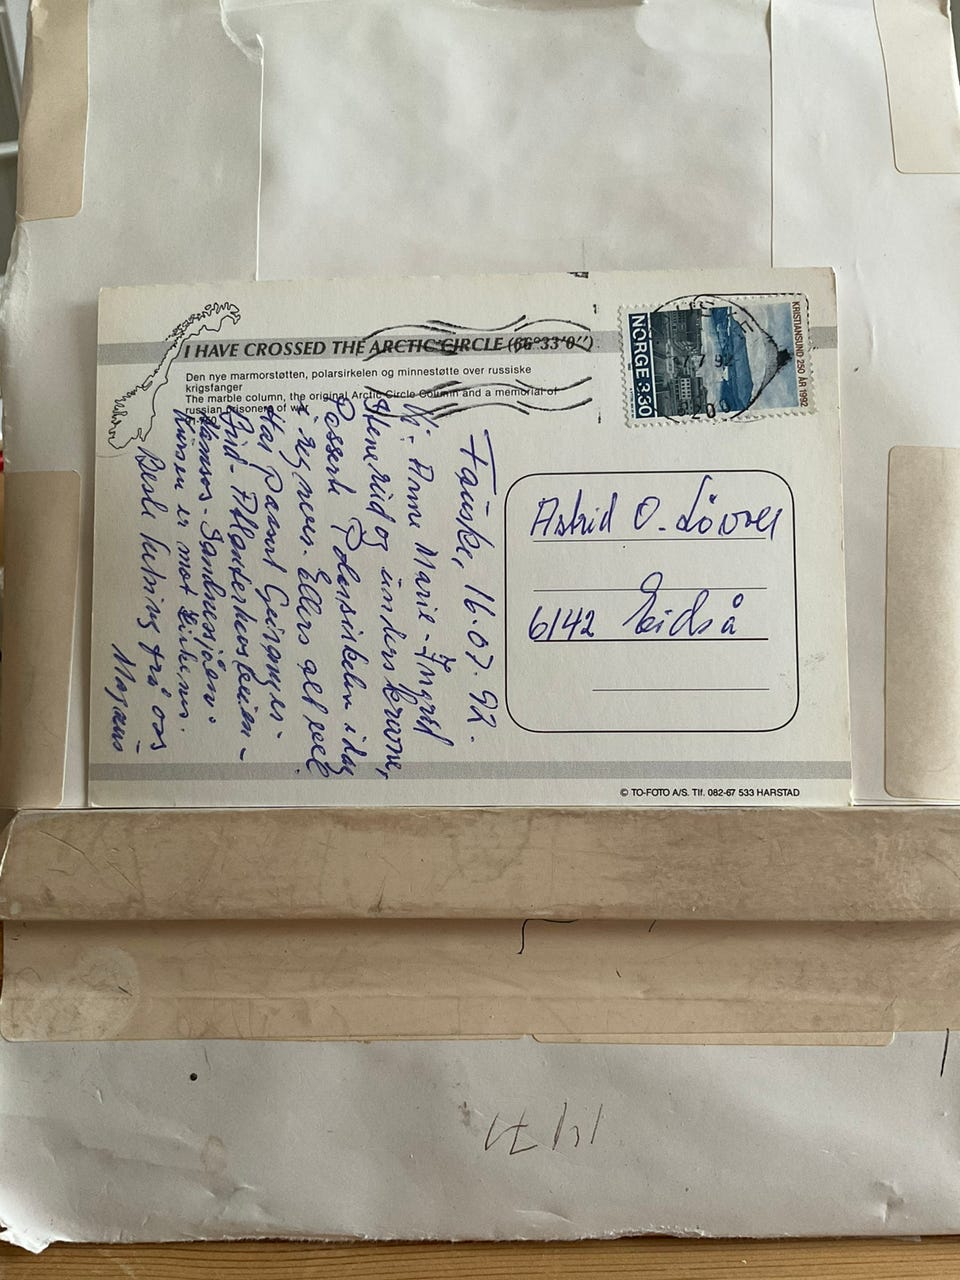 I HAVE CROSSED THE ARCTIC CIRCLE (66°33'0'')
Den nye marmorstøtten, polarsirkelen og minnestøtte over russiske
krigsfanger
The marble column, the original Arctic Circle Column and a memorial of
russian prisoners of war
NORGE 3.30
KRISTIANSUND 250 ÅR 1992
Fauske, 16.07.92.
Vi: Anne Marie - Ingrid
og underskrevne,
Passerte Polarsirkelen idag
i regnver. Ellers alt vel
Har Passert Geiranger-
Namsos - Sandnessjøen.
Kursen er mot Kirkenes.
Beste hilsning frå oss
Magnus
Astrid O. Løvoll
6142 Eidså
© TO-FOTO A/S. Tlf. 082-67 533 HARSTAD